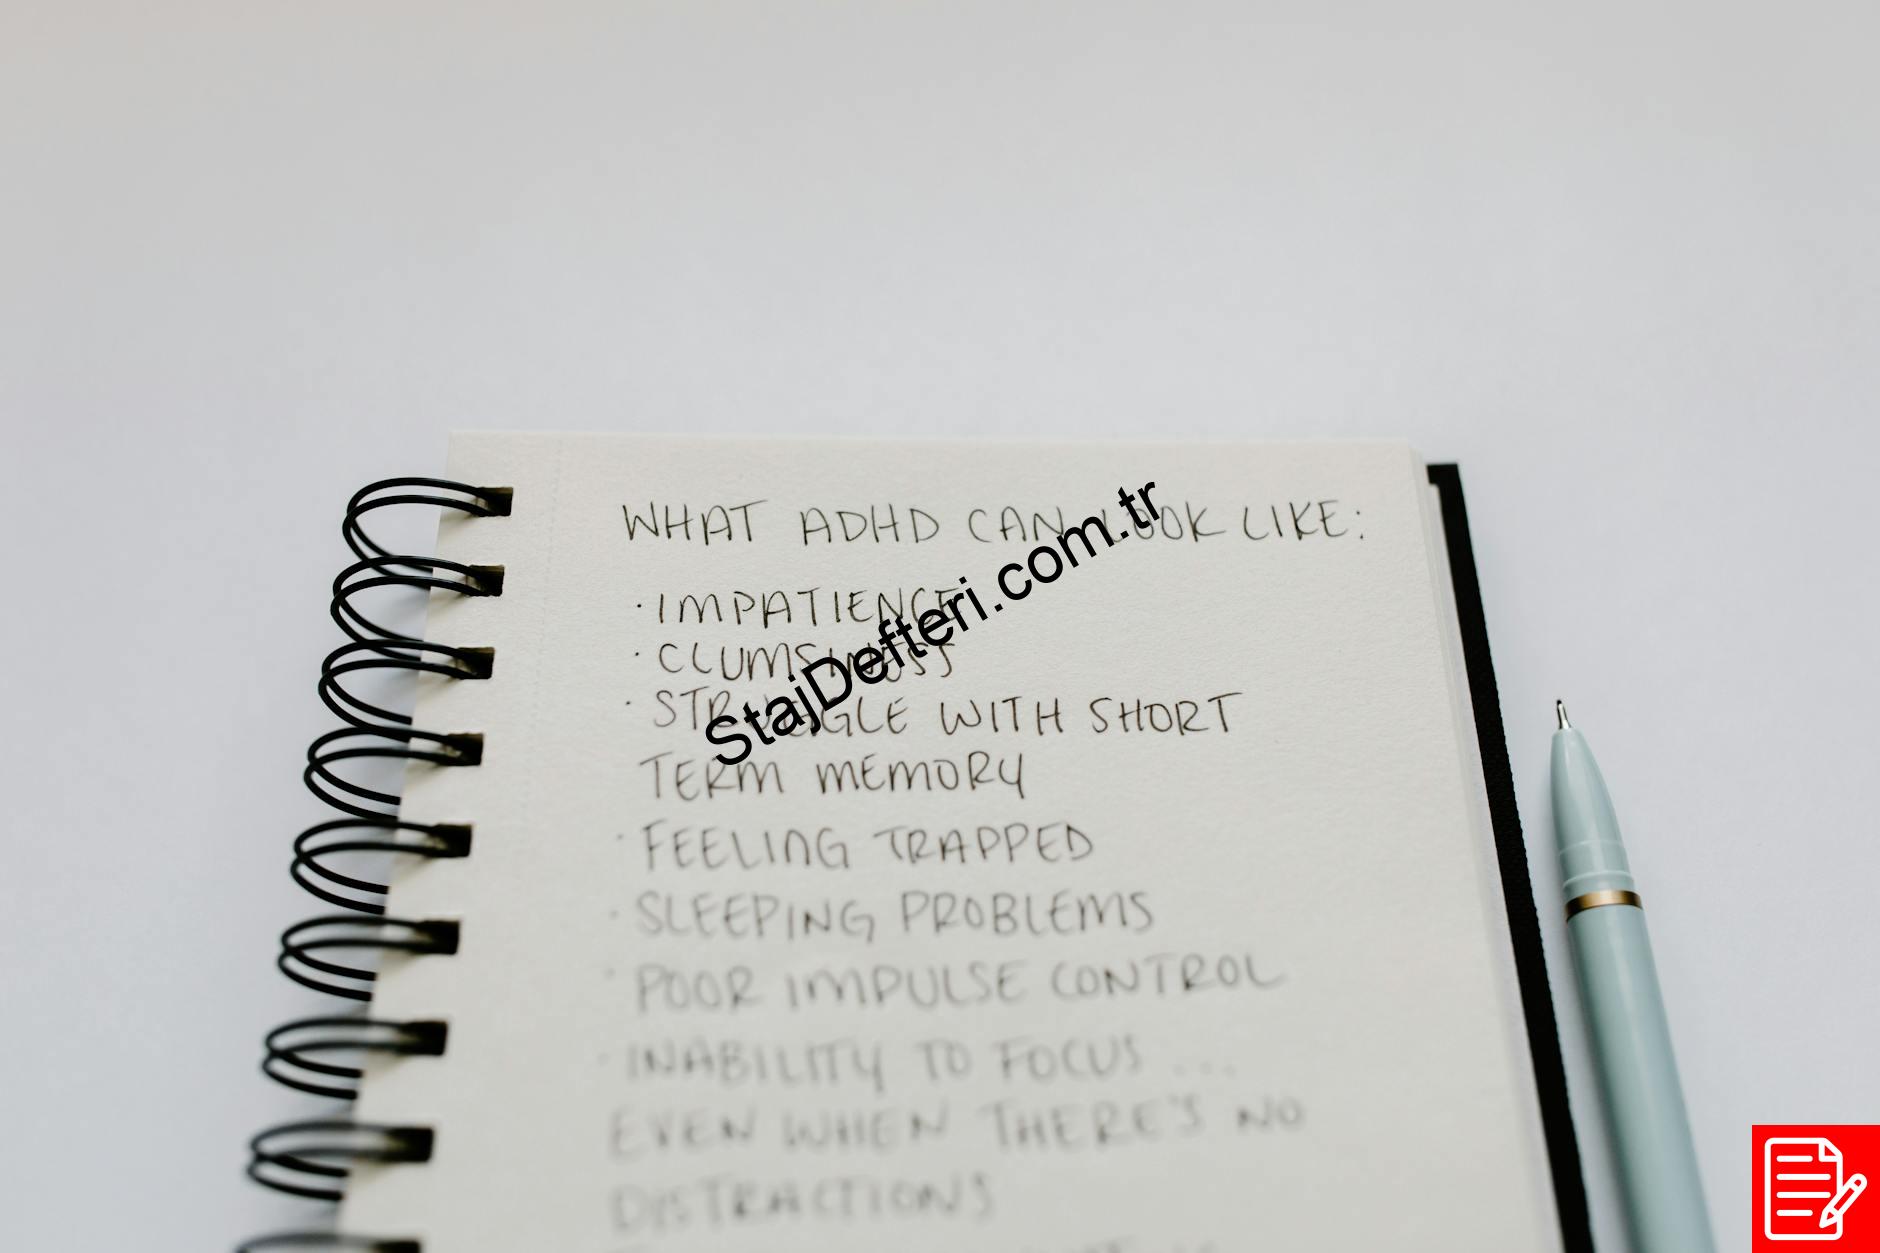 WHAT ADHD CAN LOOK LIKE:
· IMPATIENCE
· CLUMSINESS
· STRUGGLE WITH SHORT
TERM MEMORY
· FEELING TRAPPED
· SLEEPING PROBLEMS
· POOR IMPULSE CONTROL
· INABILITY TO FOCUS ...
EVEN WHEN THERE'S NO
DISTRACTIONS
StajDefteri.com.tr